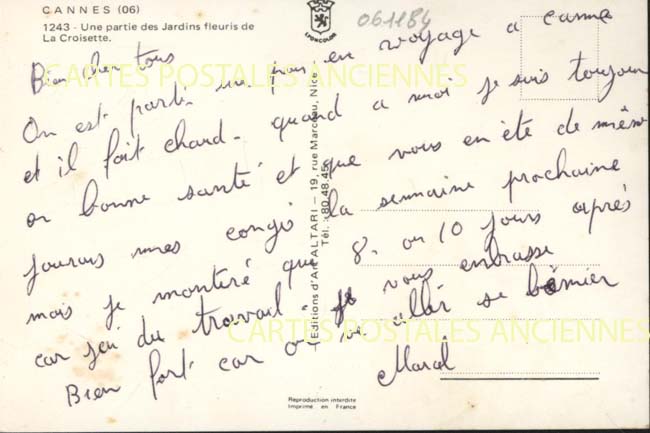 CANNES (06)
1243 - Une partie des Jardins fleuris de
La Croisette.
LYONCOLOR
061184
Bien cher tous
On est parti en voyage a Canne
et il fait chaud. quand a moi je suis toujour
en bonne santé et que vous en ète de même
mes congé la semaine prochaine
mais je montiré que 8. ou 10 jours après
car jai du travail je vous embrasse
Bien fort car on va allér se bénier
Marcel
Editions d'Art ALTARI - 19, rue Marceau, Nice
Tél. : 80.48.45
Reproduction interdite
Imprimé en France
CARTES POSTALES ANCIENNES
CARTES POSTALES ANCIENNES